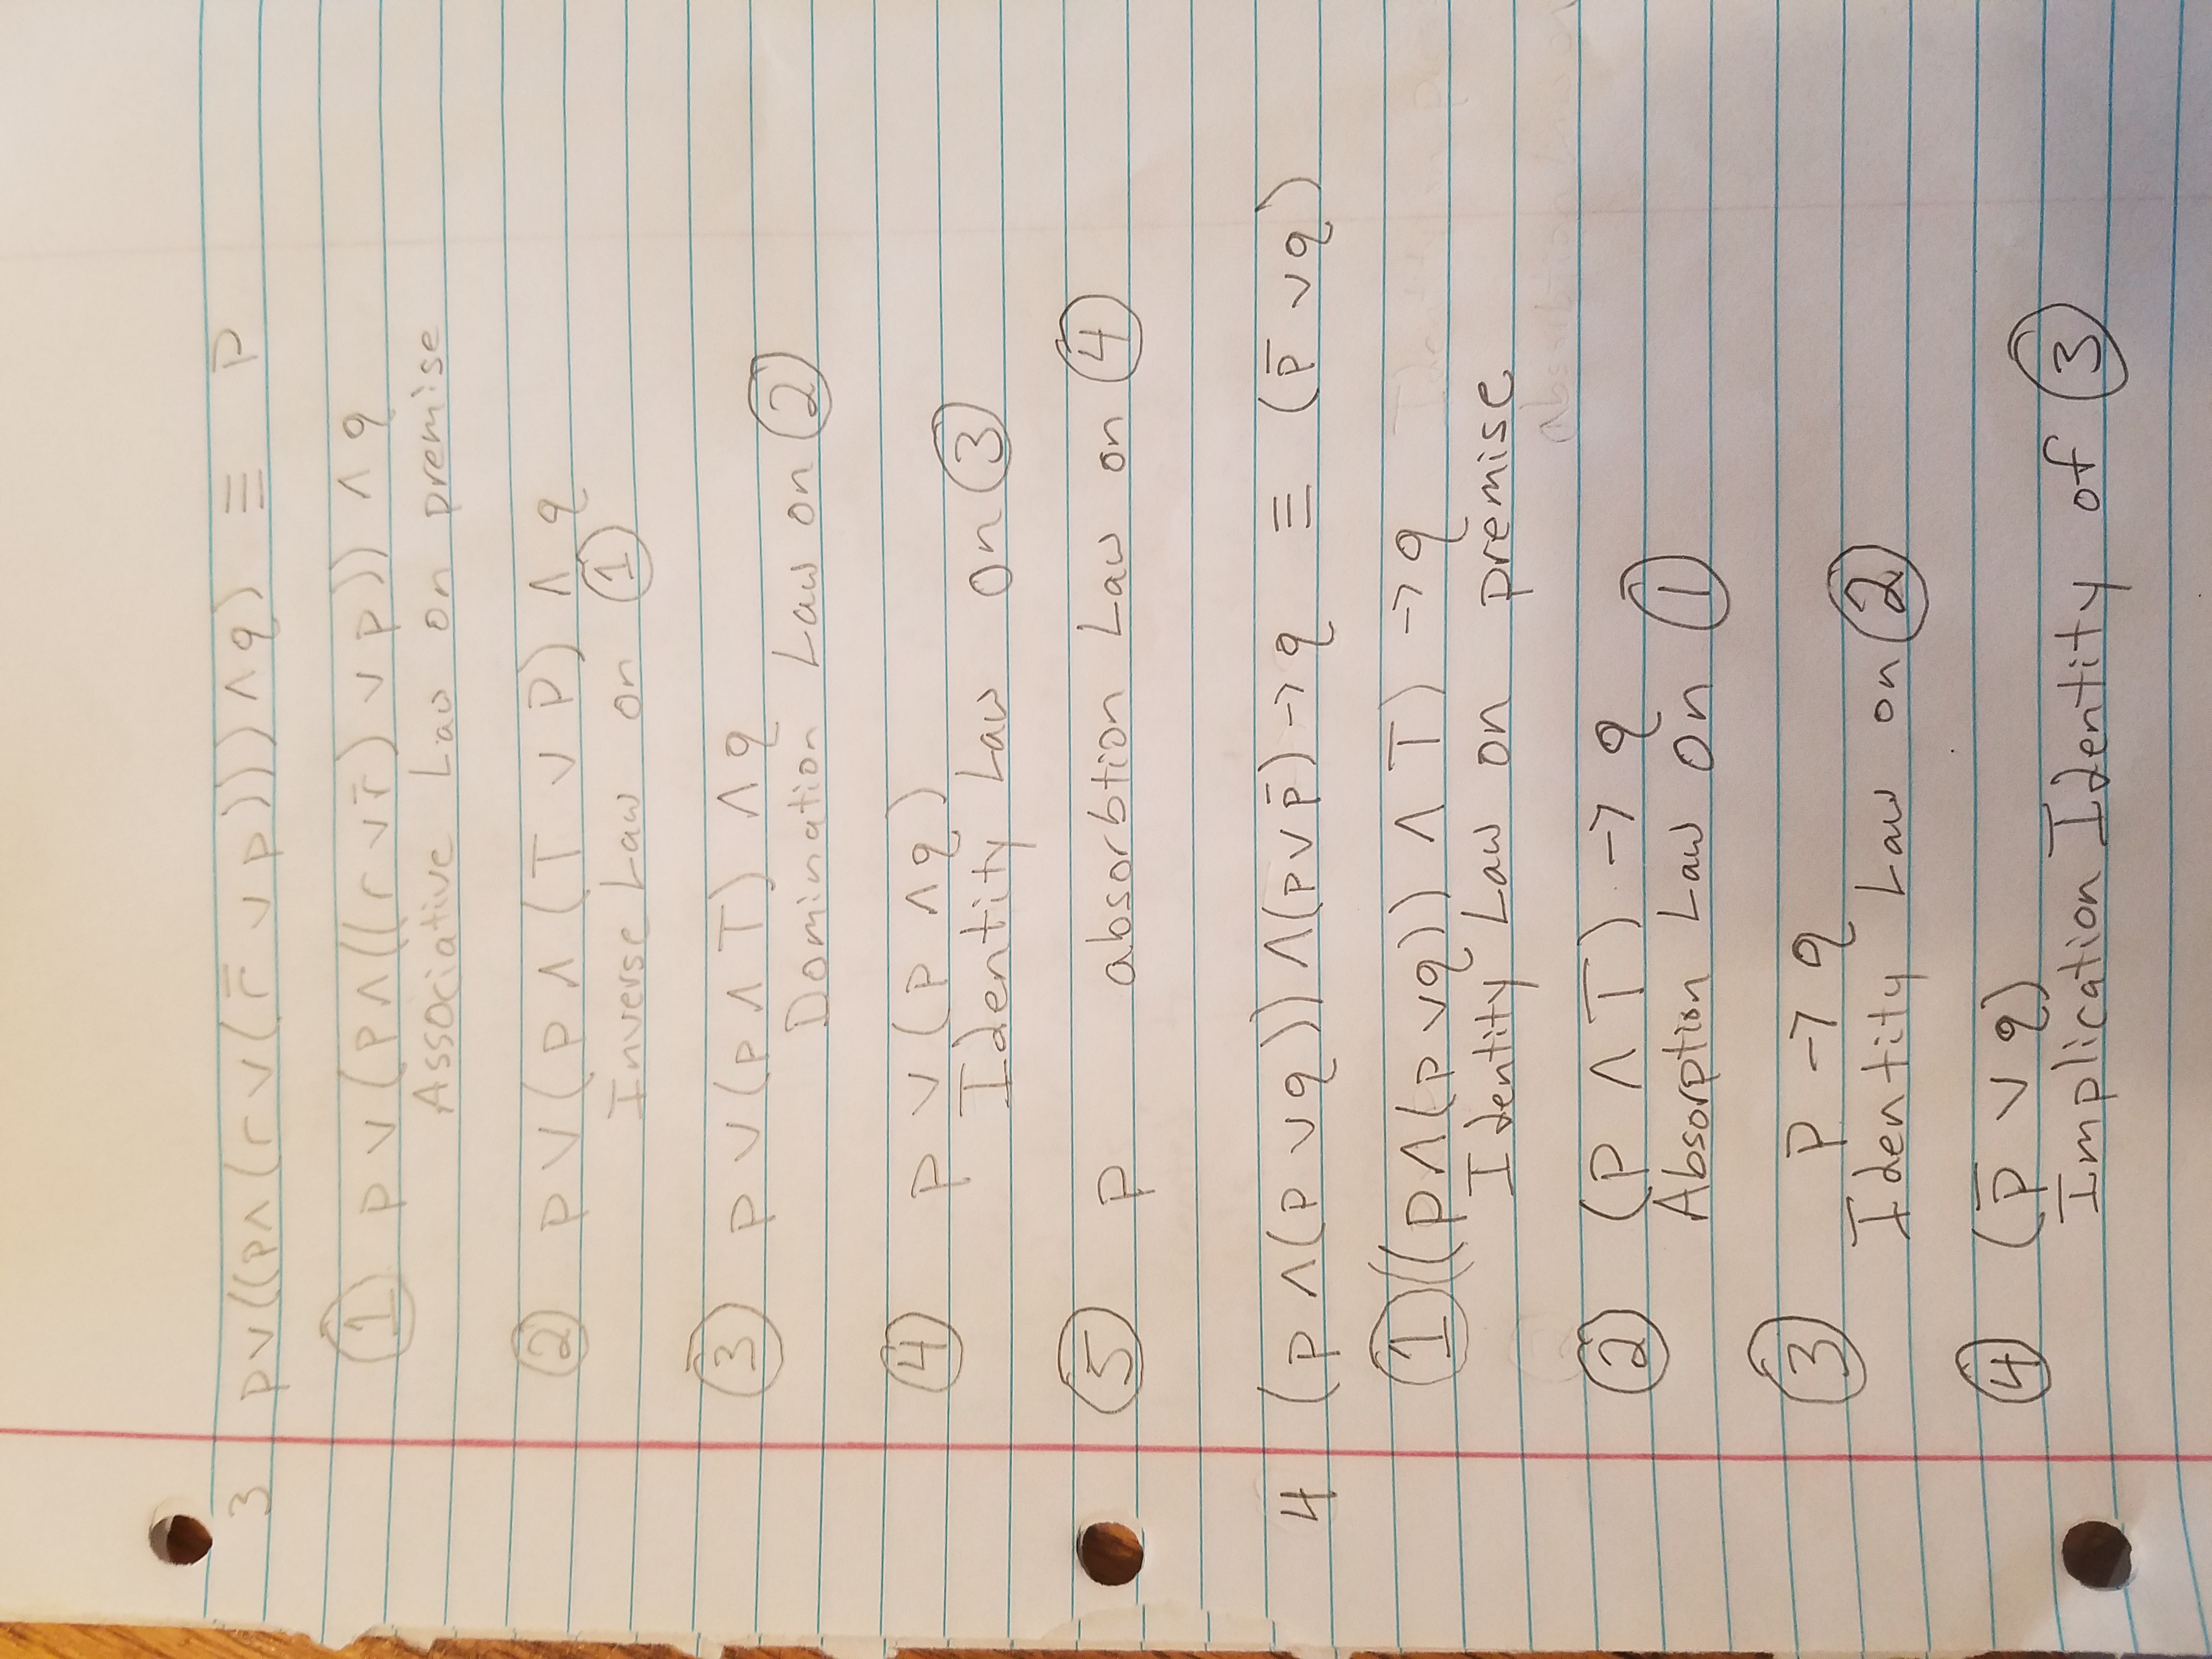 3 p∨((p∧(r∨(r̅∨p)))∧q) ≡ P
① p∨(p∧((r∨r̅)∨p))∧q
Associative Law on premise
② p∨(p∧(T∨P)∧q
Inverse Law on ①
③ p∨(p∧T)∧q
Domination Law on ②
④ p∨(p∧q)
Identity Law on ③
⑤ p absorbtion Law on ④
4 (p∧(p∨q))∧(p∨p̅)→q ≡ (p̅∨q)
① ((p∧(p∨q))∧T)→q
Identity Law on premise
② (P∧T)→q
Absorption Law on ①
③ P→q
Identity Law on ②
④ (p̅∨q)
Implication Identity of ③